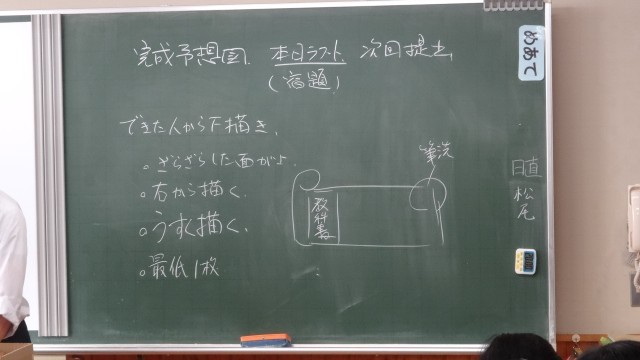 完成予想図、本日ラフト、次回提出
(宿題)
できた人から下描き、
。ざらざらした面がよ
。右から描く、
。うすく描く、
。最低1枚
筆洗
教科書
めあて
日直
松尾